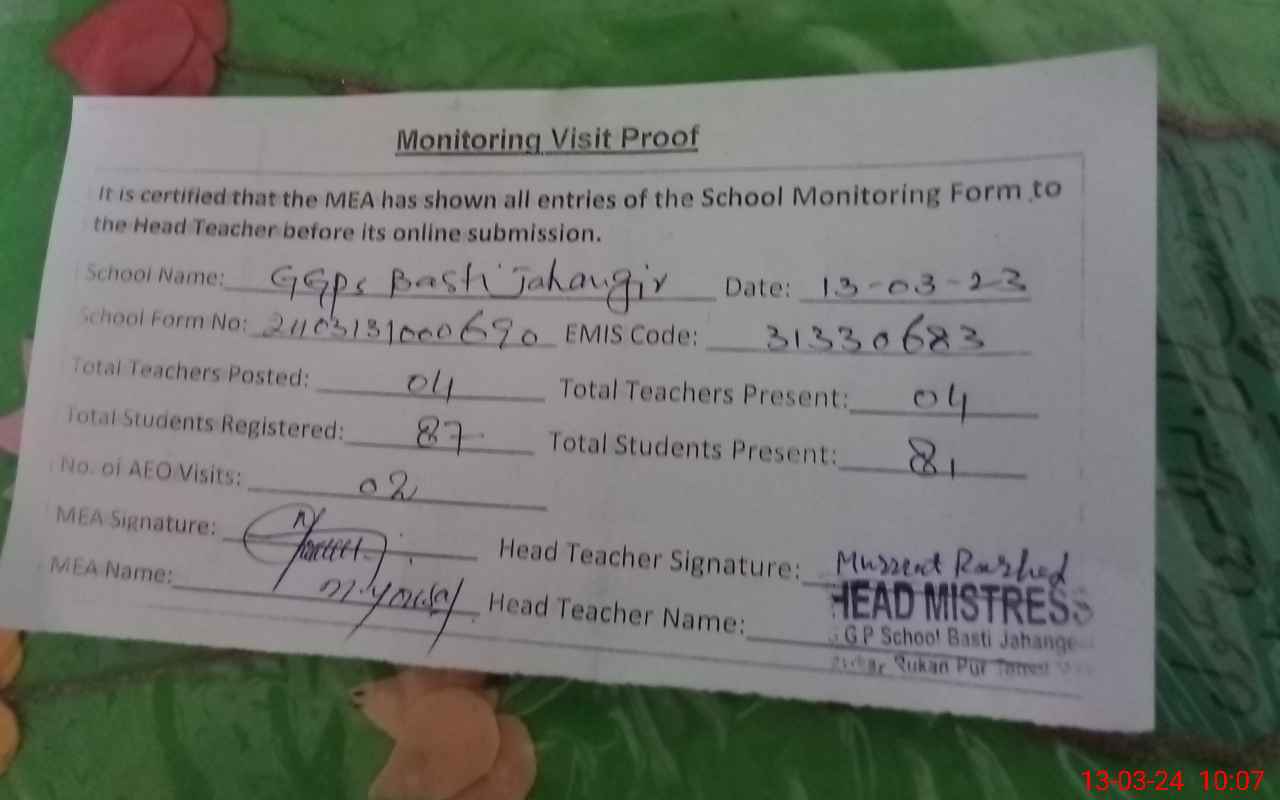 Monitoring Visit Proof
It is certified that the MEA has shown all entries of the School Monitoring Form to
the Head Teacher before its online submission.
School Name: GGps Basti Jahangir Date: 13-03-23
School Form No: 21103131000690 EMIS Code: 31330683
Total Teachers Posted: 04 Total Teachers Present: 04
Total Students Registered: 87 Total Students Present: 81
No. of AEO Visits: 02
MEA Signature: Head Teacher Signature: Mussrat Rashed
MEA Name: M.yousaf Head Teacher Name: HEAD MISTRESS
G P School Basti Jahange
Rukan Pur
13-03-24 10:07